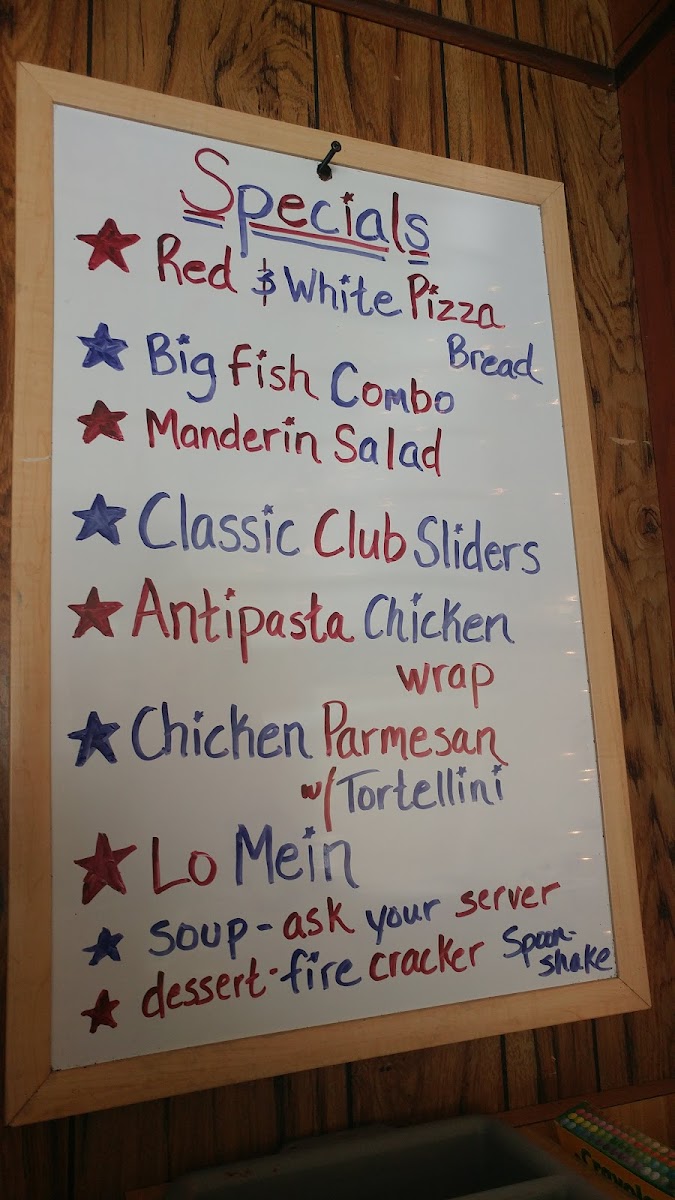 Specials
Red & White Pizza
Bread
Big Fish Combo
Manderin Salad
Classic Club Sliders
Antipasta Chicken
wrap
Chicken Parmesan
w/ Tortellini
Lo Mein
soup - ask your server
dessert - fire cracker Spoon-
shake
Crayola